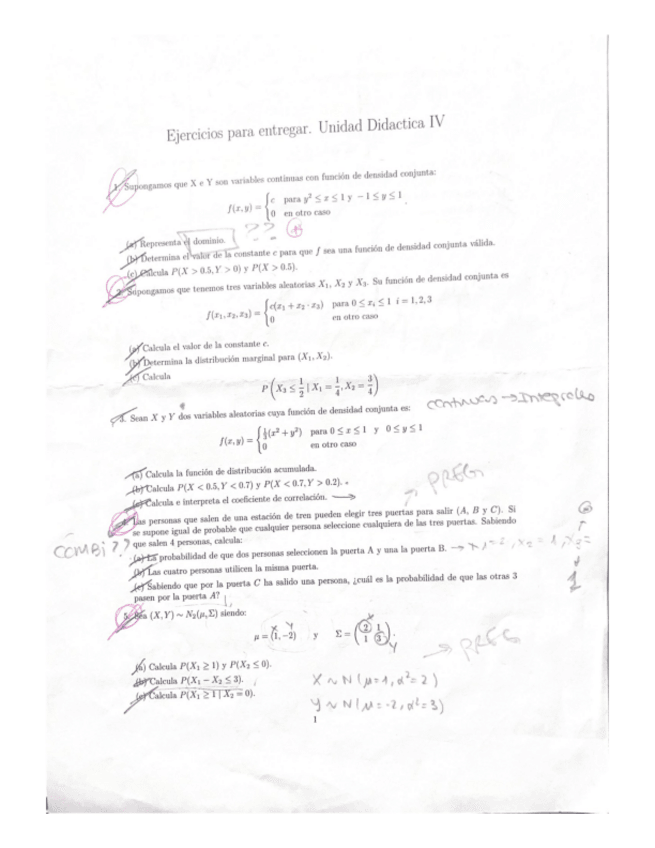 Ejercicios para entregar. Unidad Didactica IV
1. Supongamos que X e Y son variables continuas con función de densidad conjunta:
f(x, y) = { c para y² ≤ x ≤ 1 y −1 ≤ y ≤ 1
0 en otro caso
??
(a) Representa el dominio.
(b) Determina el valor de la constante c para que f sea una función de densidad conjunta válida.
(c) Calcula P(X > 0.5, Y > 0) y P(X > 0.5).
2. Supongamos que tenemos tres variables aleatorias X₁, X₂ y X₃. Su función de densidad conjunta es
f(x₁, x₂, x₃) = { c(x₁ + x₂ · x₃) para 0 ≤ xᵢ ≤ 1 i = 1, 2, 3
0 en otro caso
(a) Calcula el valor de la constante c.
(b) Determina la distribución marginal para (X₁, X₂).
(c) Calcula
P(X₃ ≤ 1/2 | X₁ = 1/4, X₂ = 3/4)
continuas → Integrales
3. Sean X y Y dos variables aleatorias cuya función de densidad conjunta es:
f(x, y) = { (x² + y²) para 0 ≤ x ≤ 1 y 0 ≤ y ≤ 1
0 en otro caso
(a) Calcula la función de distribución acumulada.
(b) Calcula P(X < 0.5, Y < 0.7) y P(X < 0.7, Y > 0.2).
PREG
(c) Calcula e interpreta el coeficiente de correlación. →
4. Las personas que salen de una estación de tren pueden elegir tres puertas para salir (A, B y C). Si
se supone igual de probable que cualquier persona seleccione cualquiera de las tres puertas. Sabiendo
que salen 4 personas, calcula:
COMBI??
(a) La probabilidad de que dos personas seleccionen la puerta A y una la puerta B. →
1
(b) Las cuatro personas utilicen la misma puerta.
(c) Sabiendo que por la puerta C ha salido una persona, ¿cuál es la probabilidad de que las otras 3
pasen por la puerta A?
5. Sea (X, Y) ~ N₂(μ, Σ) siendo:
x y
μ = (1, −2) y Σ = (2 1
1 3).
x
y
→ PREG
(a) Calcula P(X₁ ≥ 1) y P(X₂ ≤ 0).
(b) Calcula P(X₁ − X₂ ≤ 3).
(c) Calcula P(X₁ ≥ 1 | X₂ = 0).
X ~ N(μ=1, σ²=2)
Y ~ N(μ=-2, σ²=3)
1